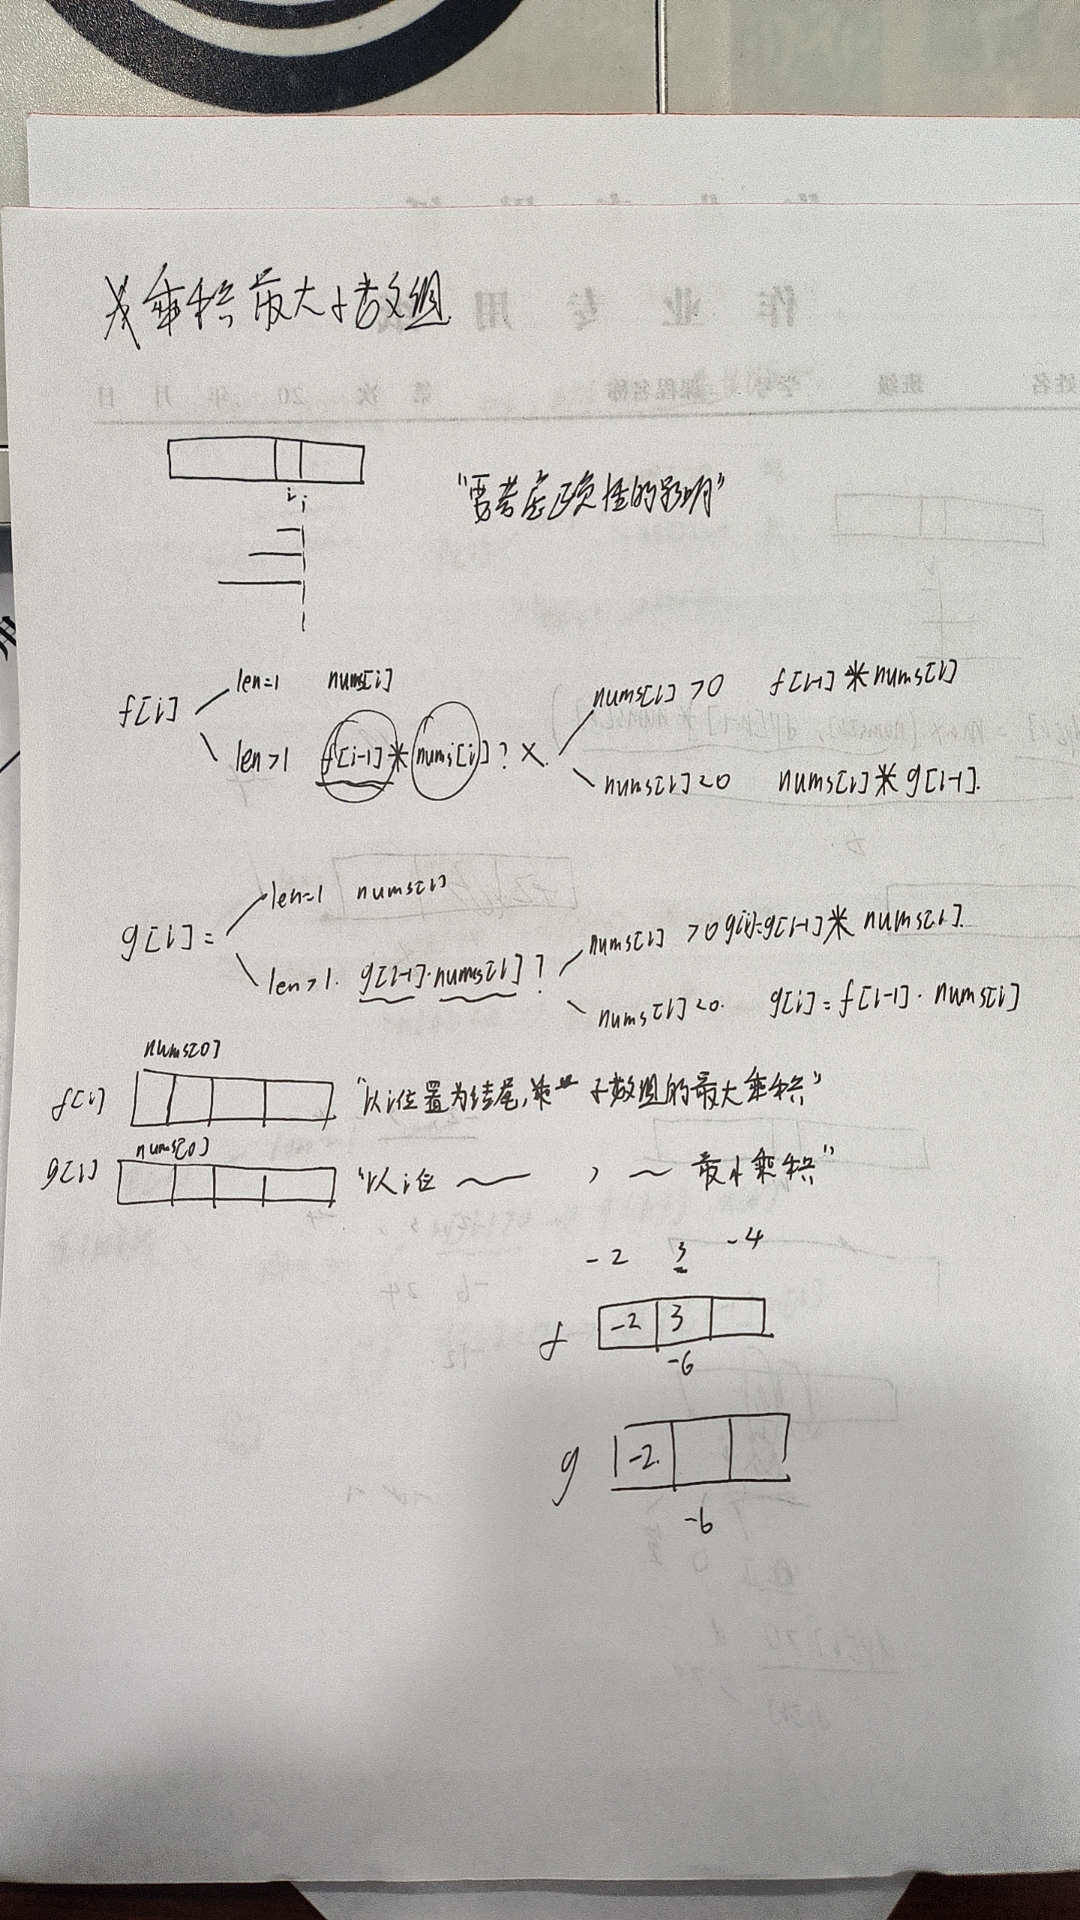 求乘积最大子数组
i i
"需考虑正负性的影响"
f[i] len=1 nums[i]
len>1 f[i-1]*nums[i]? ×
nums[i]>0 f[i-1]*nums[i]
nums[i]<0 nums[i]*g[i-1].
g[i]= len=1 nums[i]
len>1. g[i-1]·nums[i]?
nums[i]>0 g[i]=g[i-1]*nums[i].
nums[i]<0. g[i]=f[i-1]·nums[i]
nums[0]
f[i] "以i位置为结尾, 子数组的最大乘积"
nums[0]
g[i] "以i位 , 最小乘积"
-2 3 -4
f -2 3
-6
g -2.
-6